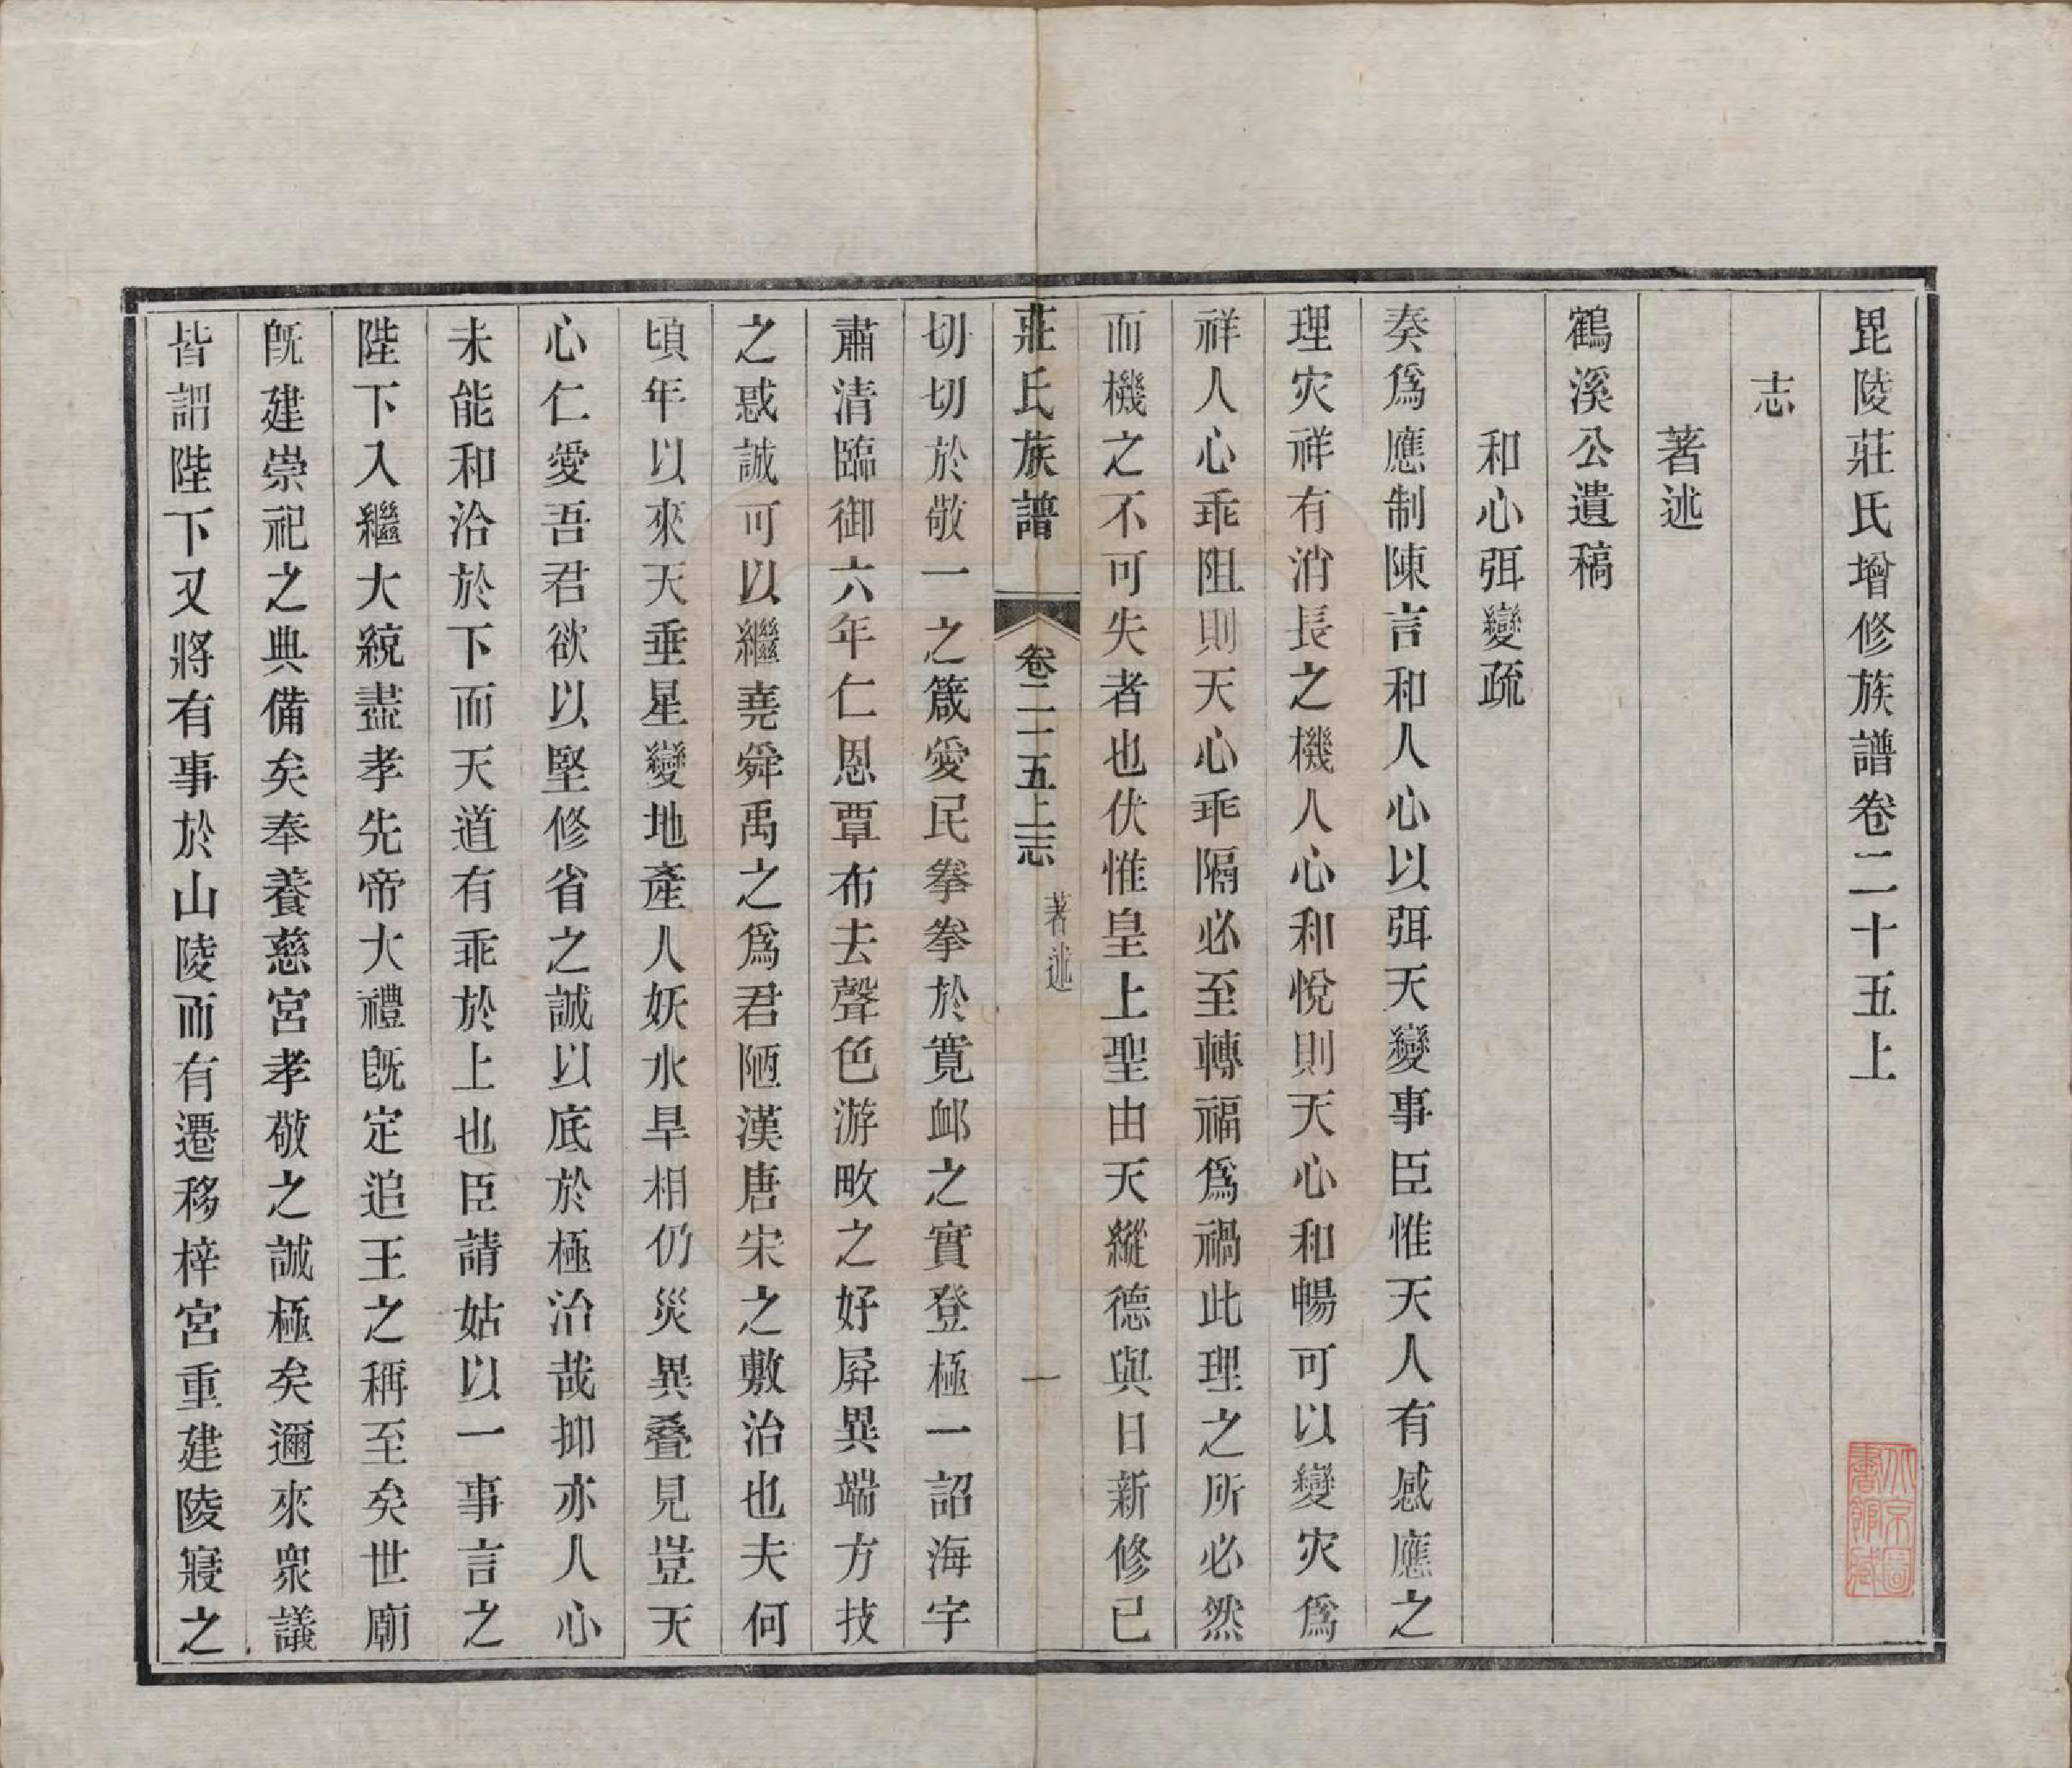 毘陵莊氏增修族譜卷二十五上
志
著述
鶴溪公遺稿
和心弭變疏
奏爲應制陳言和人心以弭天變事臣惟天人有感應之
理灾祥有消長之機人心和悅則天心和暢可以變灾爲
祥人心乖阻則天心乖隔必至轉福爲禍此理之所必然
而機之不可失者也伏惟皇上聖由天縱德與日新修已
莊氏族譜 卷二十五上志 著述 一
切切於敬一之箴愛民拳拳於寬卹之實登極一詔海宇
肅清臨御六年仁恩覃布去聲色游畋之好屏異端方技
之惑誠可以繼堯舜禹之爲君陋漢唐宋之敷治也夫何
頃年以來天垂星變地產人妖水旱相仍災異叠見豈天
心仁愛吾君欲以堅修省之誠以底於極治哉抑亦人心
未能和洽於下而天道有乖於上也臣請姑以一事言之
陛下入繼大統盡孝先帝大禮旣定追王之稱至矣世廟
旣建崇祀之典備矣奉養慈宮孝敬之誠極矣邇來衆議
皆謂陛下又將有事於山陵而有遷移梓宮重建陵寢之
北京圖書館藏